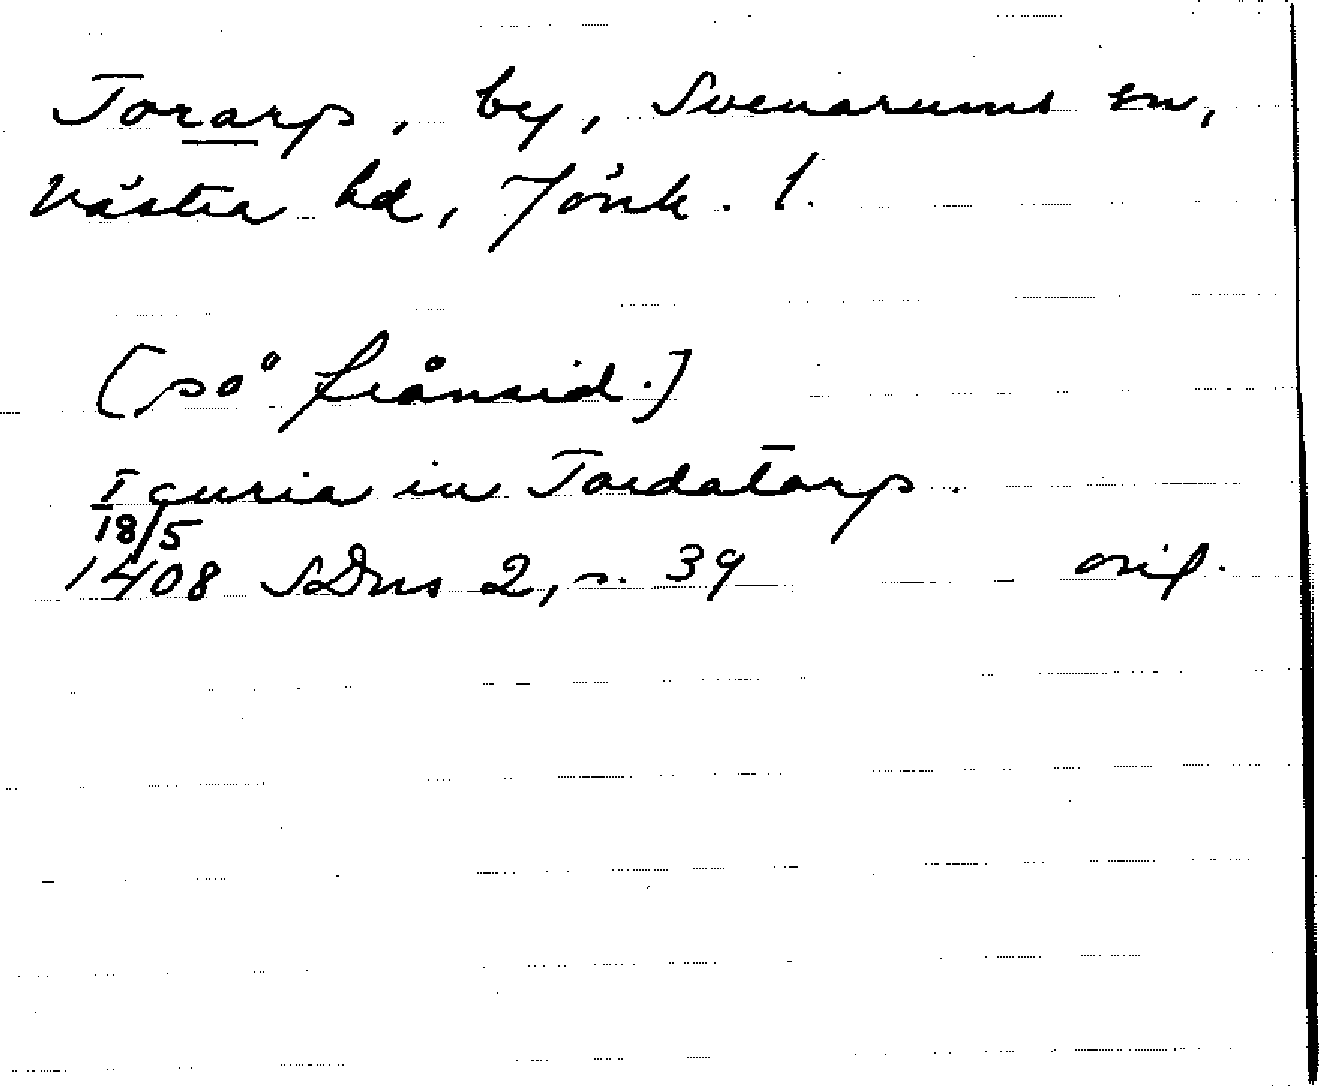 Torarp, by, Svenarums sn,
Västra hd, Jönk. l.
[på frånsid.]
I curia in Tordatorp.
18/5
1408 SDns 2, s. 39 orig.